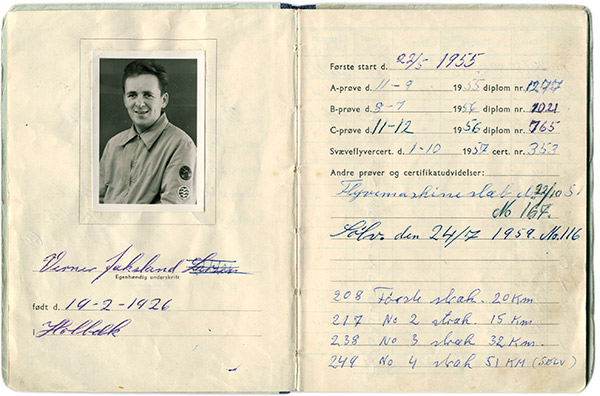 Verner Jaksland
Egenhændig underskrift
født d. 19-2-1926
i Holbæk
Første start d. 22/5 1955
A-prøve d. 11-9 1955 diplom nr. 1277
B-prøve d. 8-7 1956 diplom nr. 1021
C-prøve d. 11-12 1956 diplom nr. 765
Svæveflyvercert. d. 1-10 1957 cert. nr. 353
Andre prøver og certifikatudvidelser:
Flyvemaskineslæb d. 22/10
No 167.
Sølv. den 24/7 1959. No. 116
208 Første stræk. 20 Km
217 No 2 stræk. 15 Km
238 No 3 stræk 32 Km.
249 No 4 stræk 51 KM (SØLV)